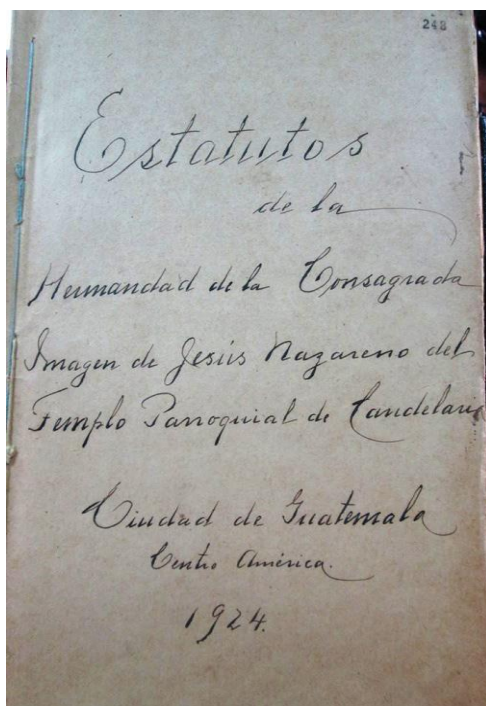 248
Estatutos
de la
Hermandad de la Consagrada
Imagen de Jesús Nazareno del
Templo Parroquial de Candelaria
Ciudad de Guatemala
Centro América.
1924.